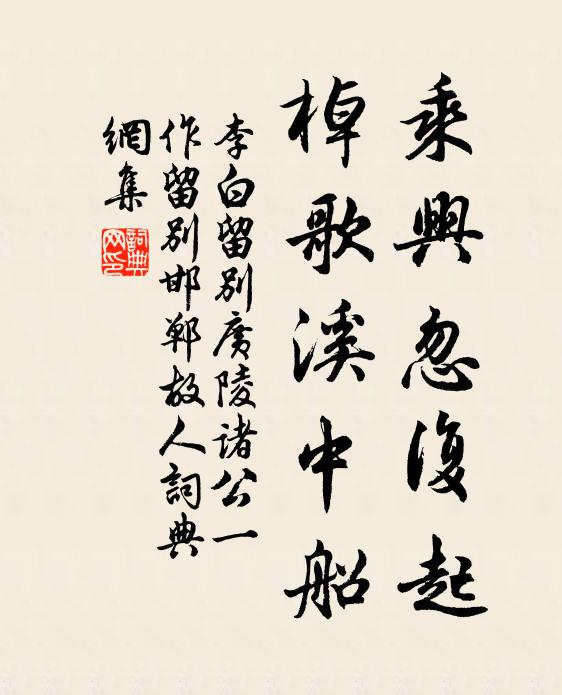 乘興忽復起
棹歌溪中船
李白留別廣陵諸公一
作留別邯鄲故人詞典
網集
詞典網印